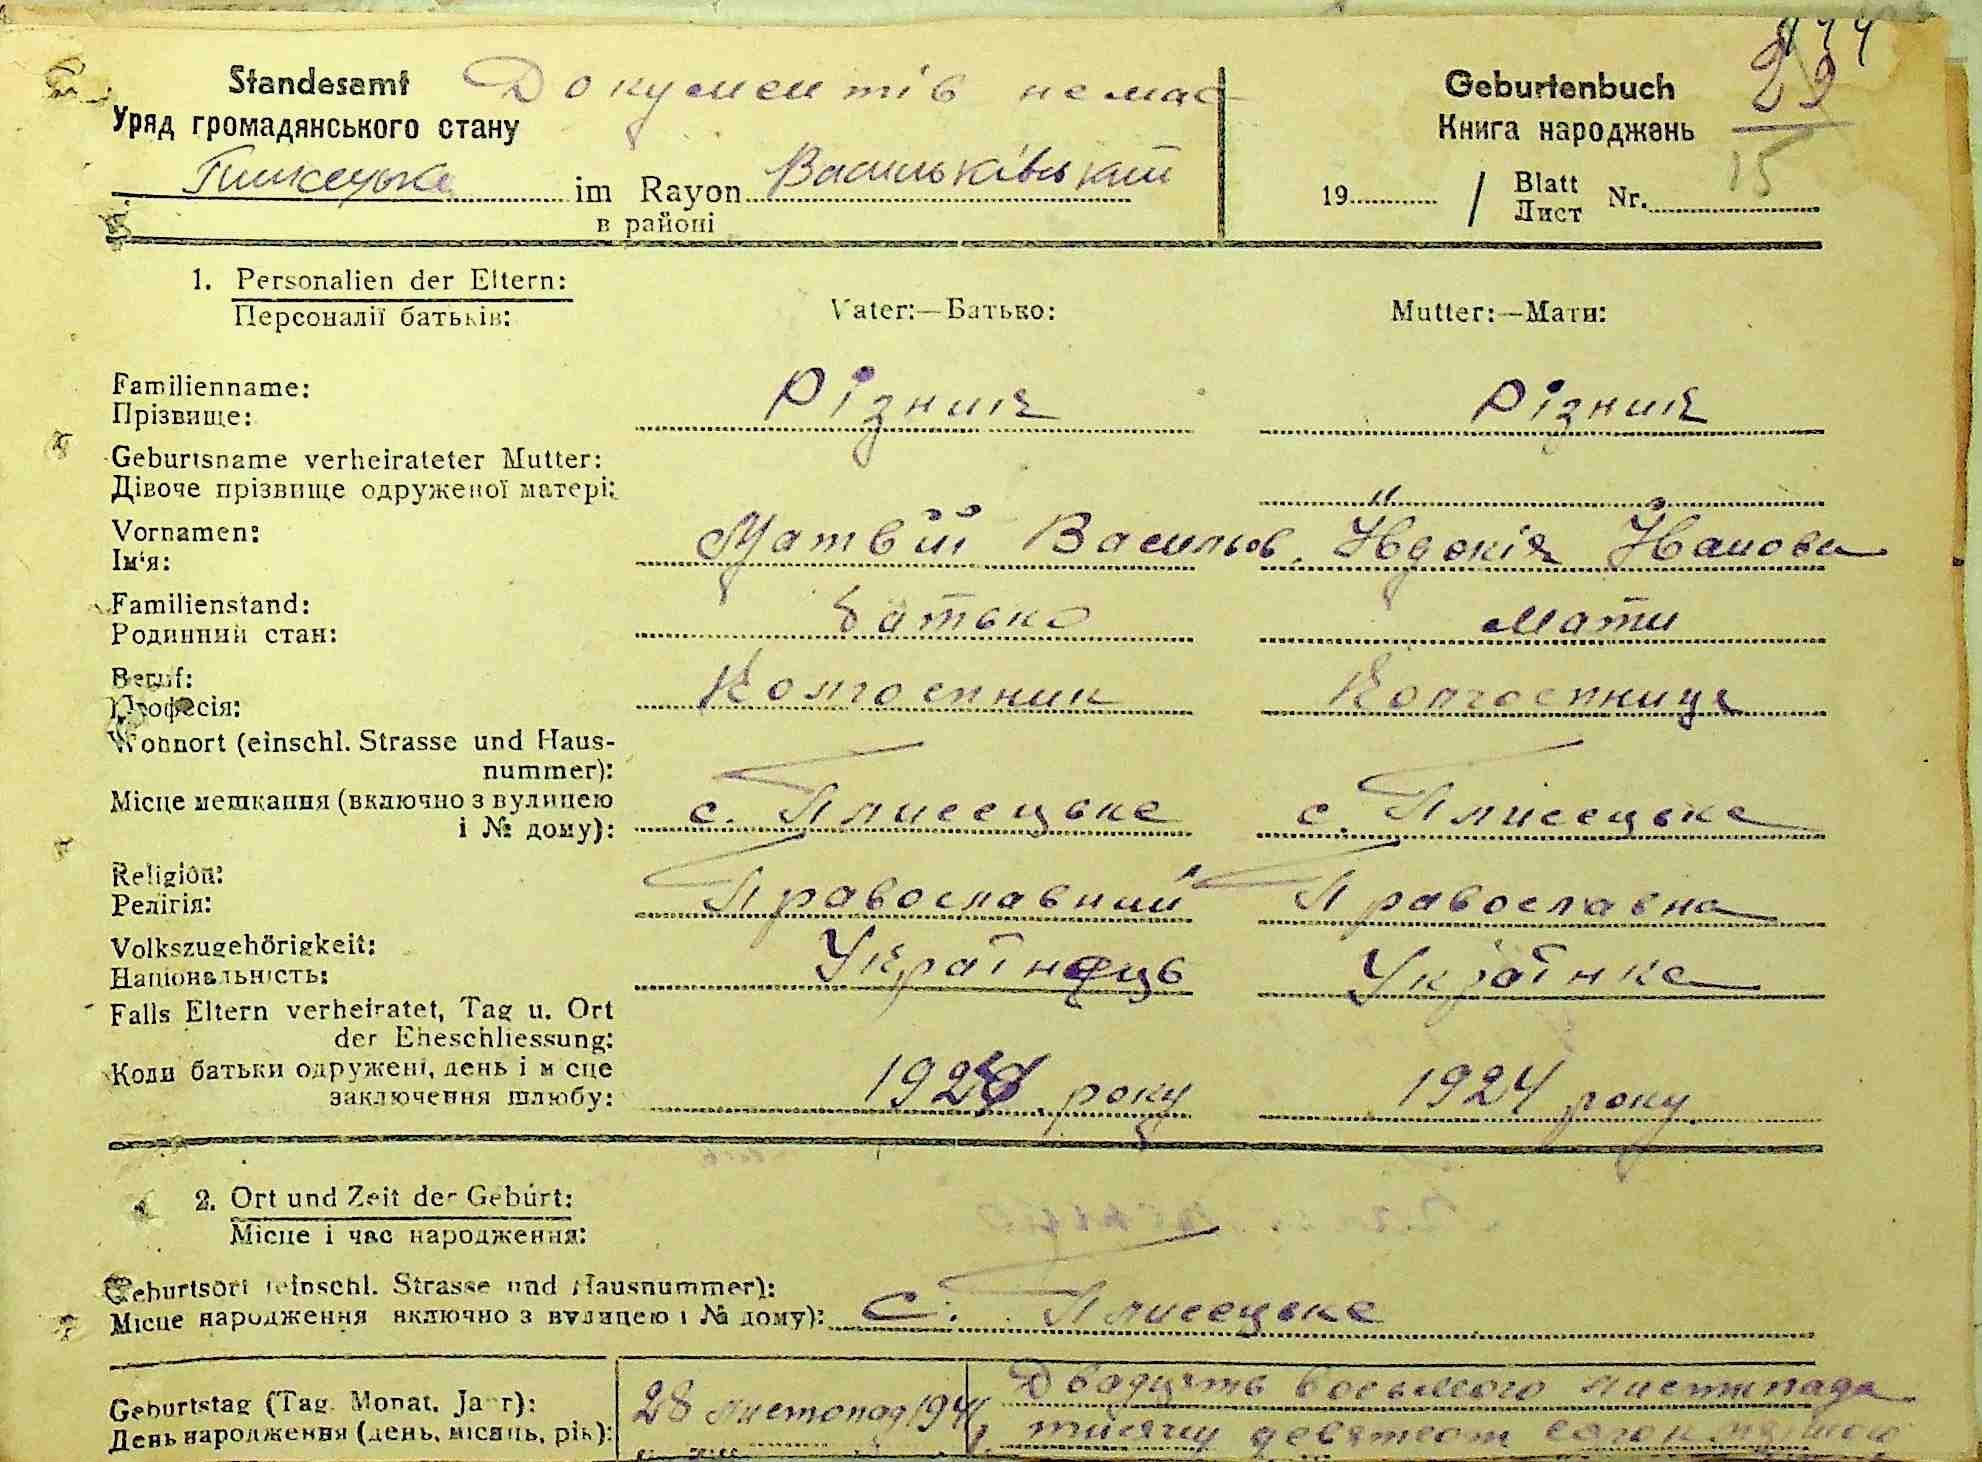 Standesamt Документів немає Geburtenbuch
Уряд громадянського стану Книга народжень
Плисецьке im Rayon Васильківський 19 / Blatt Nr. 15
в районі Лист
1. Personalien der Eltern: Vater:—Батько: Mutter:—Мати:
Персоналії батьків:
Familienname: Різник Різник
Прізвище:
Geburtsname verheirateter Mutter:
Дівоче прізвище одруженої матері: "
Vornamen: Матвій Васильов. Явдокія Іванова
Ім'я:
Familienstand: батько мати
Родинний стан:
Beruf: Колгоспник Колгоспниця
Професія:
Wohnort (einschl. Strasse und Haus-
nummer):
Місце мешкання (включно з вулицею с. Плисецьке с. Плисецьке
і № дому):
Religion: Православний Православна
Релігія:
Volkszugehörigkeit: Українець Українка
Національність:
Falls Eltern verheiratet, Tag u. Ort
der Eheschliessung:
Коли батьки одружені, день і місце 1924 року 1924 року
заключення шлюбу:
2. Ort und Zeit der Geburt:
Місце і час народження:
Geburtsort (einschl. Strasse und Hausnummer):
Місце народження включно з вулицею і № дому): с. Плисецьке
Geburtstag (Tag. Monat. Jahr): 28 листопад Двадцять восьмого листопада
День народження (день, місяць, рік): тисячу девятсот